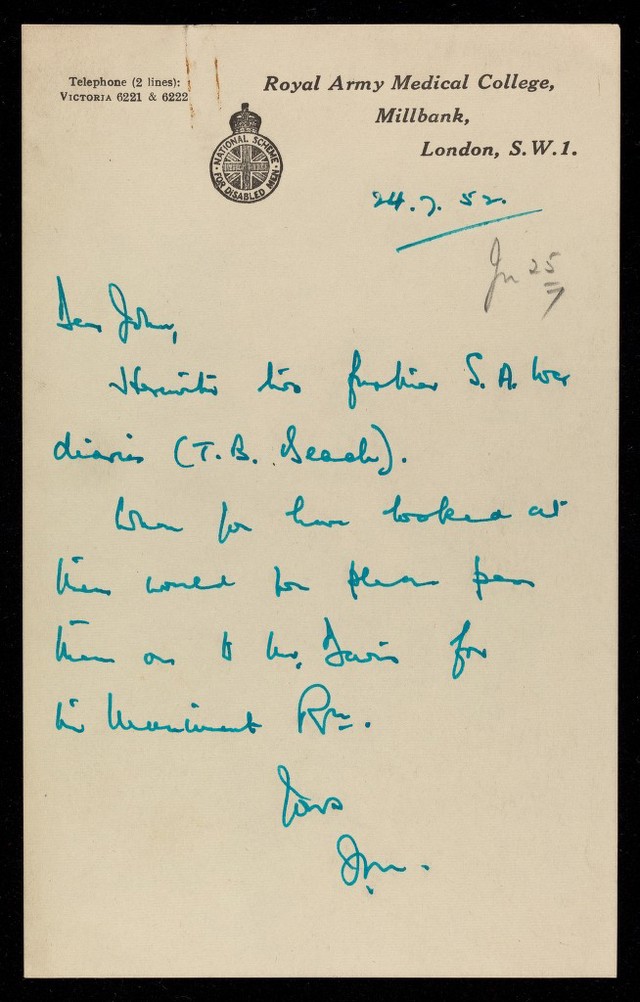 Telephone (2 lines):
VICTORIA 6221 & 6222
Royal Army Medical College,
Millbank,
London, S.W.1.
NATIONAL SCHEME
FOR DISABLED MEN
24.7.52.
25
7
Dear John,
Herewith two further S.A. War
diaries (T.B. Beach).
When you have looked at
them would you please pass
them on to Mr. Davis for
the Muniment Rm.
Yours